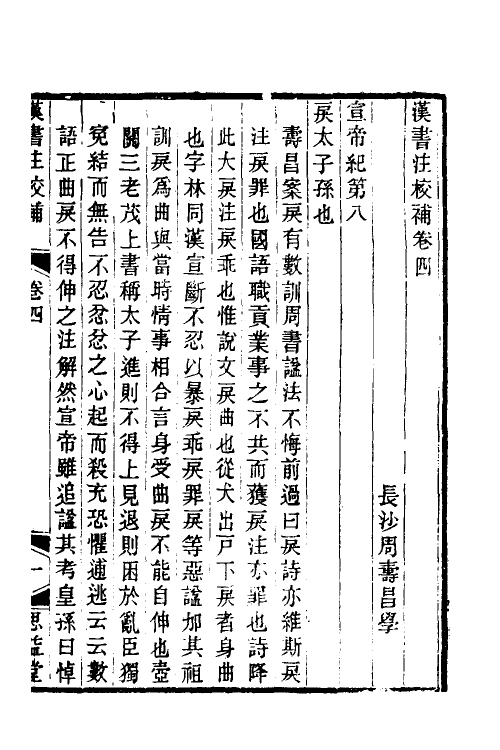 漢書注校補卷四
長沙周壽昌學
宣帝紀第八
戾太子孫也
壽昌案戾有數訓周書諡法不悔前過曰戾詩亦維斯戾
注戾罪也國語職貢業事之不共而獲戾注亦罪也詩降
此大戾注戾乖也惟說文戾曲也從犬出戶下戾者身曲
也字林同漢宣斷不忍以暴戾乖戾罪戾等惡諡加其祖
訓戾爲曲與當時情事相合言身受曲戾不能自伸也壺
關三老茂上書稱太子進則不得上見退則困於亂臣獨
寃結而無告不忍忿忿之心起而殺充恐懼逋逃云云數
語正曲戾不得伸之注解然宣帝雖追諡其考皇孫曰悼
漢書注校補 卷四 一 思益堂